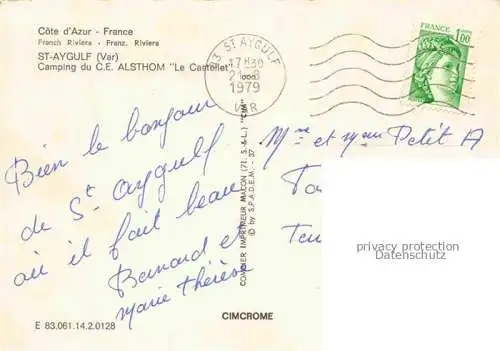 Côte d'Azur - France
French Riviera - Franz. Riviera
ST-AYGULF (Var)
Camping du C.E. ALSTHOM "Le Castellet"
83 ST AYGULF
17H30
21-8
1979
VAR
FRANCE
1,00
Bien le bonjour
de St aygulf
où il fait beau
Bernard et
marie thérèse
Mme et Petit A
COMBIER IMPRIMEUR MACON (71. S.-&-L.) "CIM"
© by S.P.A.D.E.M. - 37
privacy protection
Datenschutz
CIMCROME
E 83.061.14.2.0128